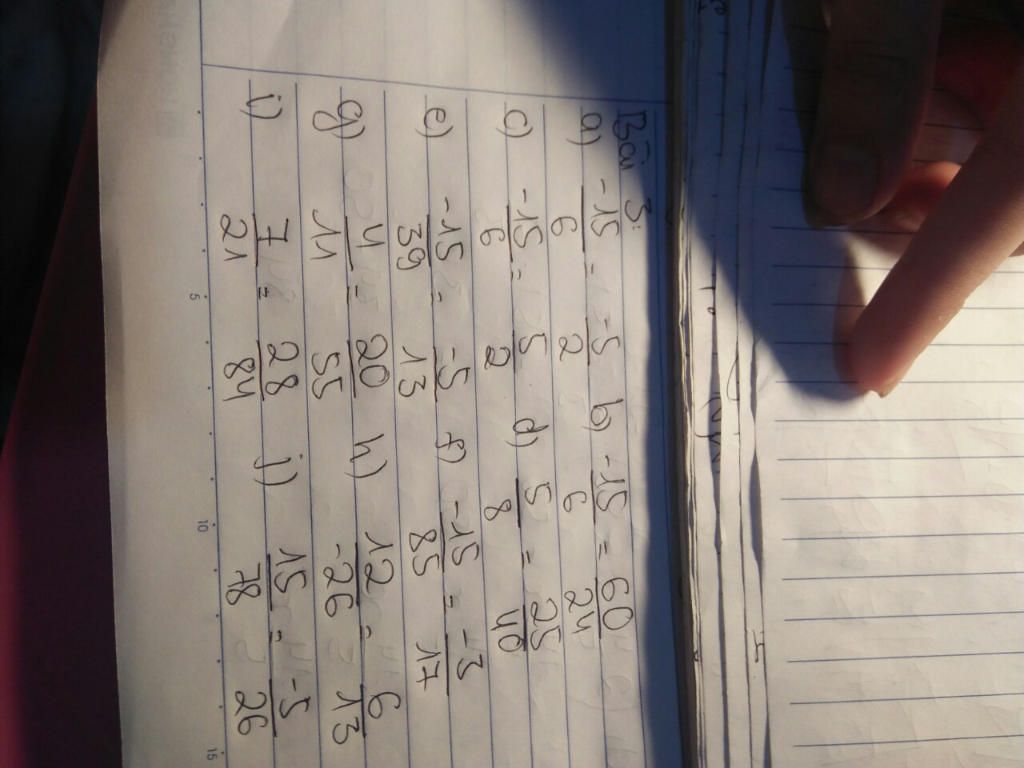 Bài 3:
a) -15/6 = -5/2 b) -15/6 = 60/24
c) -15/6 = 5/2 d) 5/8 = 25/40
e) -15/39 = -5/13 f) -15/85 = -3/17
g) 4/11 = 20/55 h) 12/-26 = 6/13
i) 7/21 = 28/84 j) 15/78 = -5/26
5 10 15